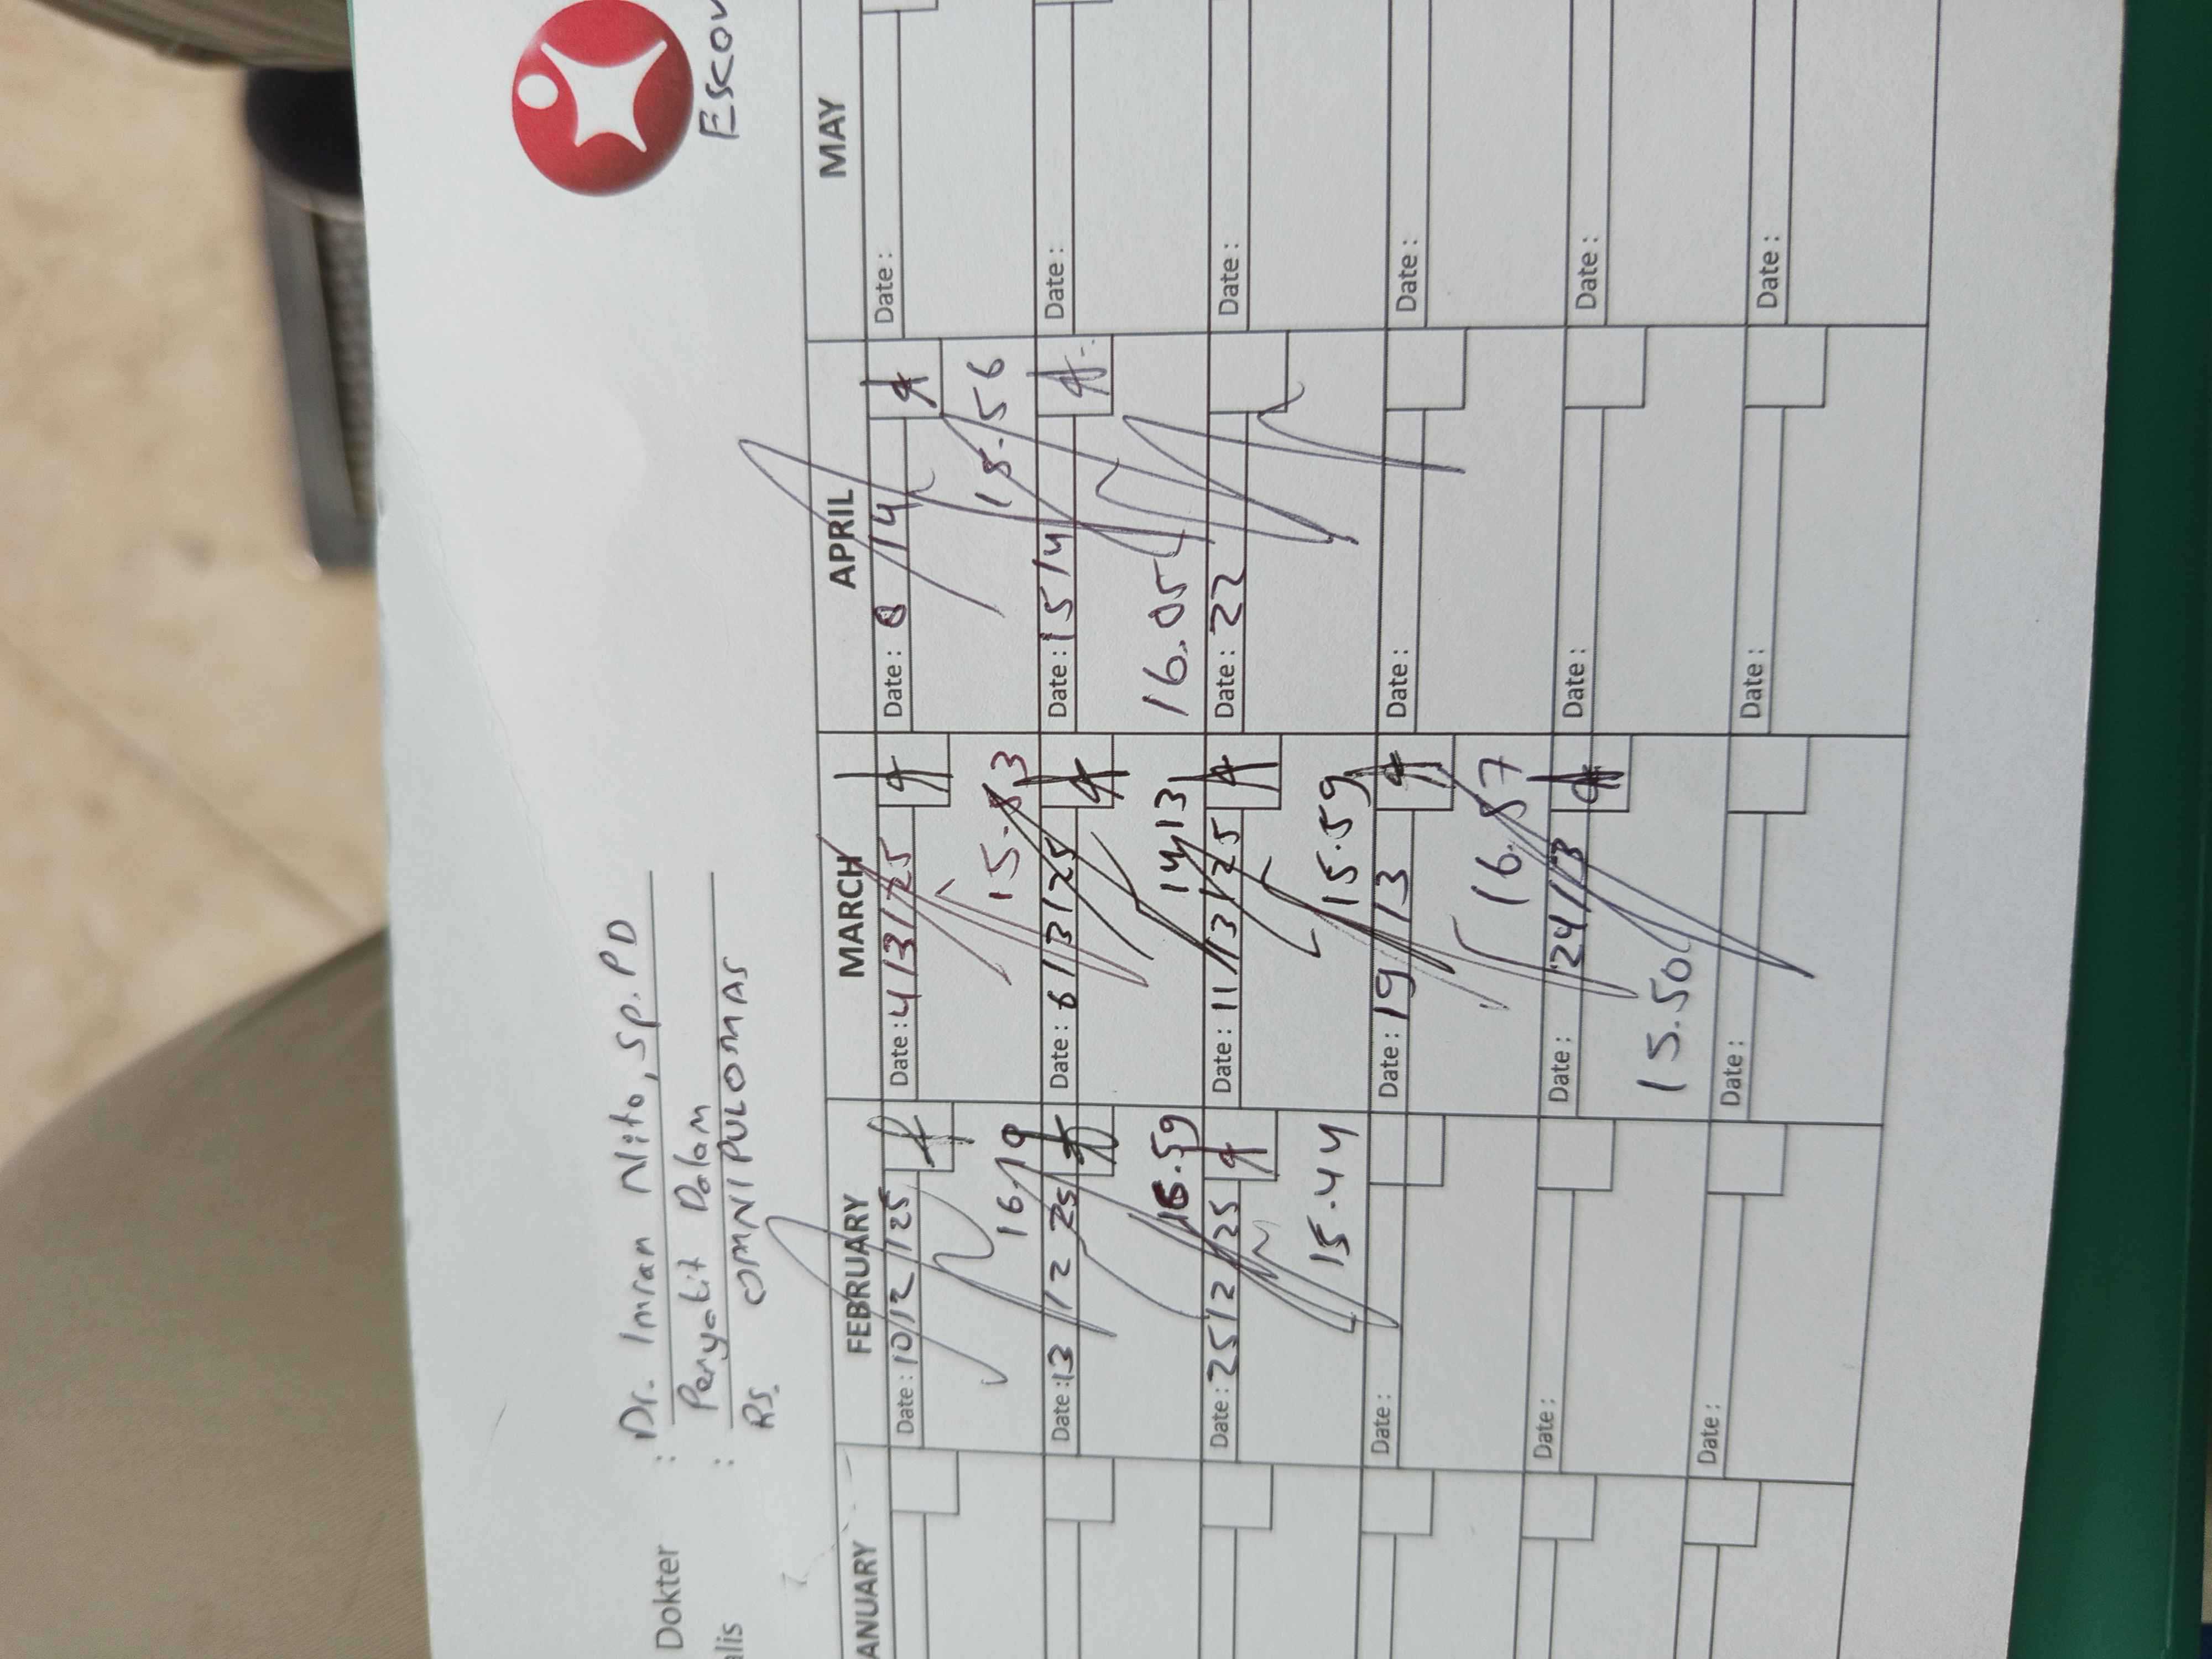 Dokter : Dr. Imran Nito, Sp.PD
alis : Penyakit Dalam
RS. OMNI PULOMAS
Escov
ANUARY FEBRUARY MARCH APRIL MAY
Date : 10/2/25 Date : 4/3/25 Date : 8/4 Date :
16.19 15.53 15.56
Date : 13/2 25 Date : 6/3/25 Date : 15/4 Date :
16.59 14.13 16.05
Date : 25/2 25 Date : 11/3/25 Date : 22 Date :
15.44 15.59
Date : Date : 19/3 Date : Date :
16.57
Date : Date : 24/3 Date : Date :
15.50
Date : Date : Date : Date :